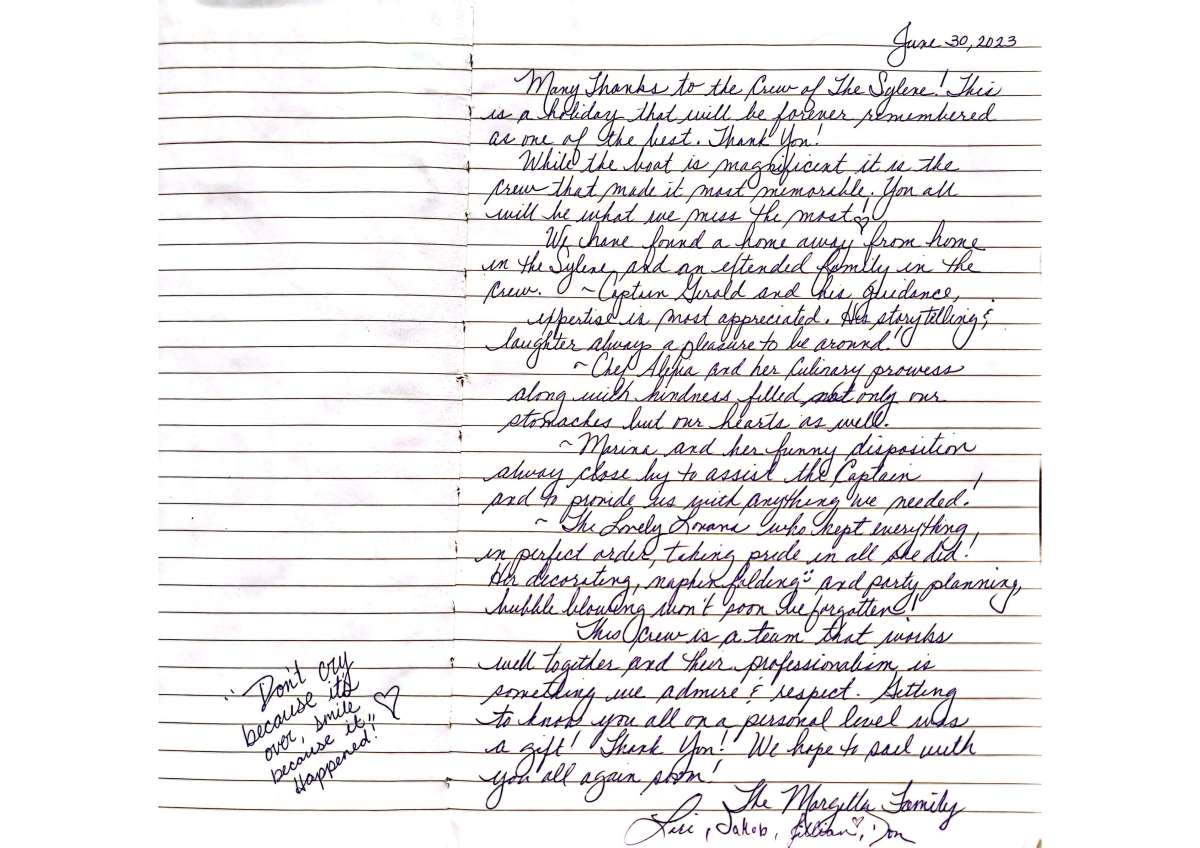 June 30, 2023
Many Thanks to the Crew of The Sylene! This
is a holiday that will be forever remembered
as one of the best. Thank You!
While the boat is magnificent it is the
crew that made it most memorable. You all
will be what we miss the most! ♡
We have found a home away from home
in the Sylene, and an extended family in the
crew. ~ Captain Gerald and his guidance,
expertise is most appreciated. His storytelling &
laughter always a pleasure to be around!
~ Chef Alexia and her Culinary prowess
along with kindness filled not only our
stomaches but our hearts as well.
~ Marina and her funny disposition
alway close by to assist the Captain
and to provide us with anything we needed!
~ The Lovely Loxana who kept everything
in perfect order, taking pride in all she did!
Her decorating, napkin folding and party planning,
bubble blowing won't soon be forgotten!
This crew is a team that works
well together and their professionalism is
something we admire & respect. Getting
to know you all on a personal level was
a gift! Thank You! We hope to sail with
you all again soon!
The Margella Family
Lisi, Jakob, Jillian ♡, Don
"Don't cry
because it's
over, smile
because it
Happened!" ♡